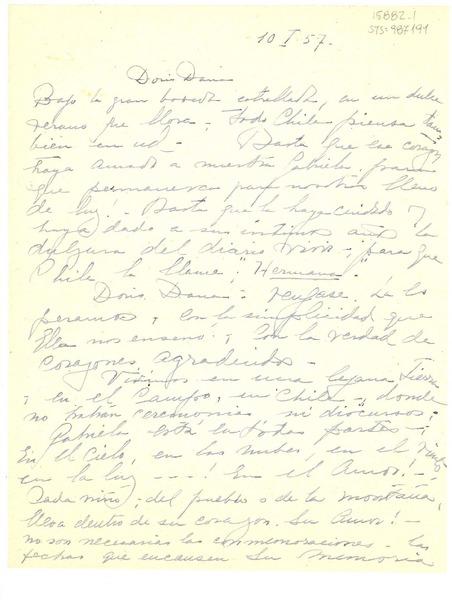 15882.1
SYS=987191
10 I 57.
Doris Dana
Bajo la gran boveda estrellada, en un dulce
verano que llora - Todo Chile piensa tam
bien en ud - Basta que ese corazón
haya amado a nuestra Gabriela, para
que permanezca para nosotros lleno
de luz! - Basta que la haya cuidado y
haya dado a sus intimos la
dulzura del diario vivir -, para que
Chile la llame; "Hermana"
Doris Dana - vengase. La es
peramos, con la simplicidad que
Ella nos enseñó; con la verdad de
corazones agradecidos -
Vivimos en una lejana Tierra
, en el Campo, en Chile -, donde
no habrán ceremonias ni discursos;
Gabriela está en todas partes -;
En el Cielo, en las nubes, en el Viento
en la luz - - - -! En el Amor! -
Cada niño; del pueblo o de la montaña,
lleva dentro de su corazon. Su Amor! -
no son necesarias las conmemoraciones - las
fechas que encausen Su Memoria